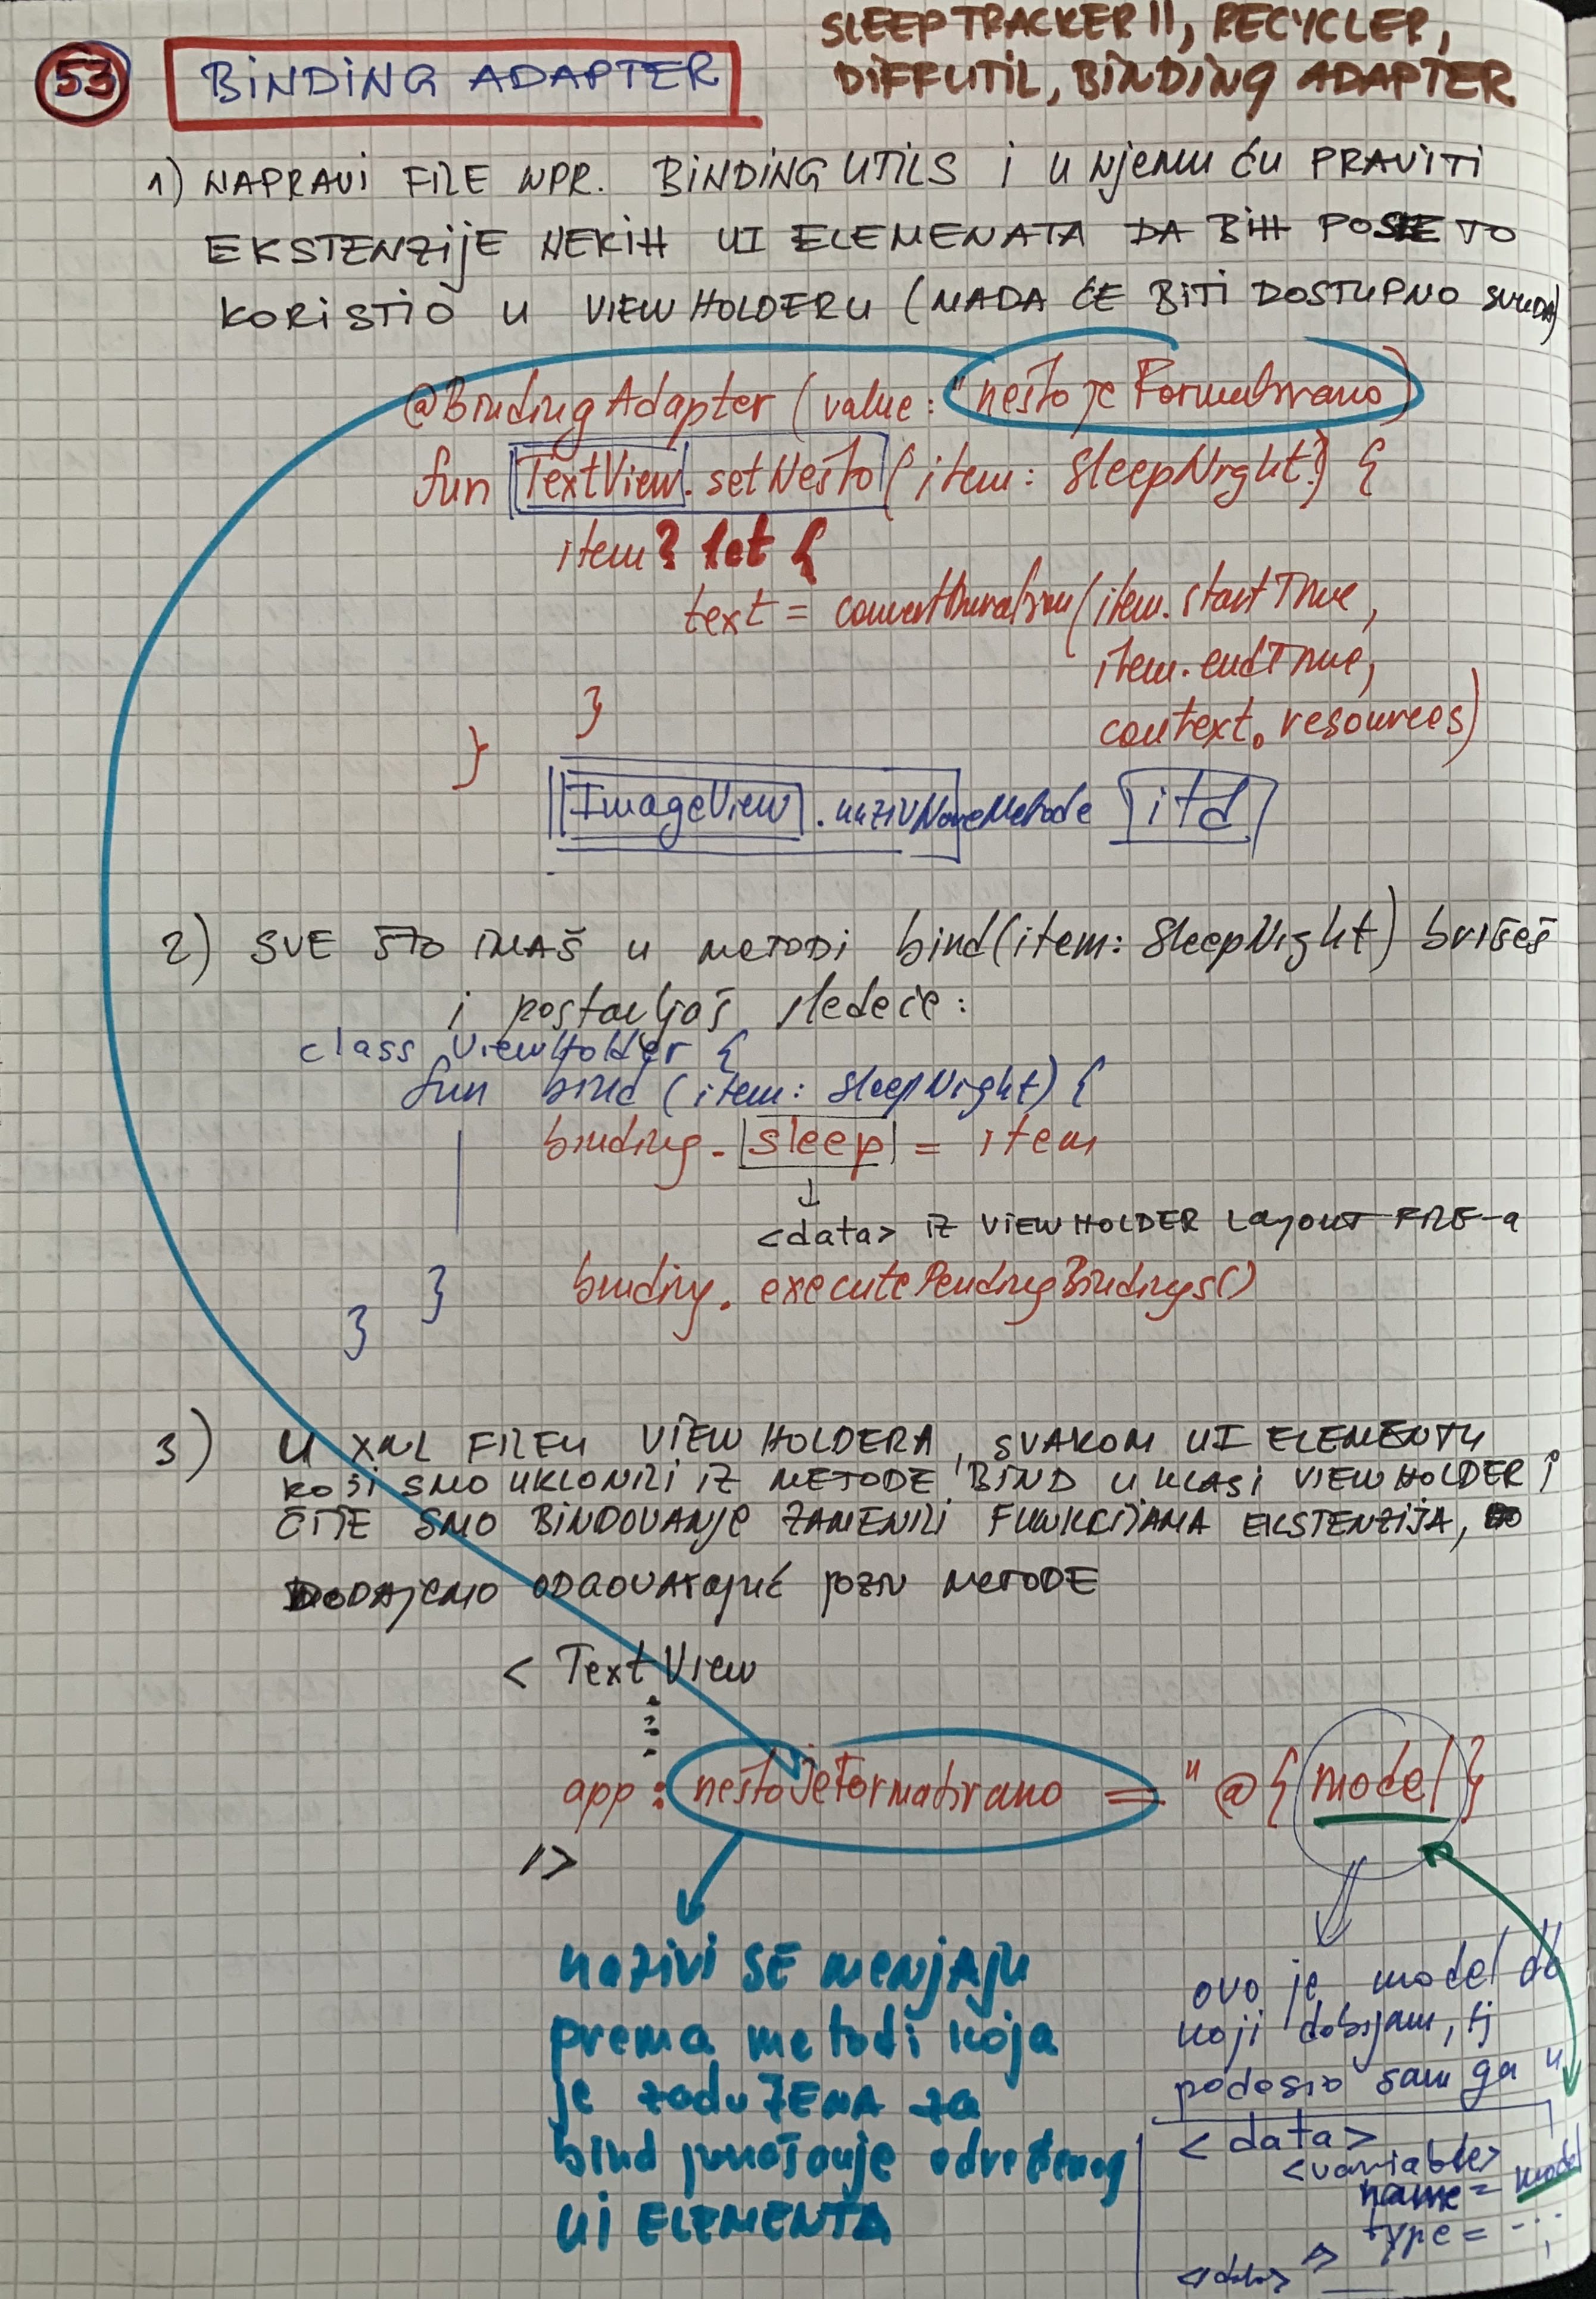 53 BINDING ADAPTER
SLEEPTRACKER II, RECYCLER,
DIFFUTIL, BINDING ADAPTER
1) NAPRAVI FILE NPR. BINDING UTILS i U NJEMU ĆU PRAVITI
EKSTENZIJE NEKIH UI ELEMENATA DA BIH POSLE TO
KORISTIO U VIEWHOLDERU (MADA ĆE BITI DOSTUPNO SVUDA)
@BindingAdapter (value: "neštojeFormatirano)
fun TextView.setNešto(item: SleepNight?) {
item? let {
text = convertDuration(item.startTime,
item.endTime,
context.resources)
}
}
ImageView.nazivNoveMetode itd
2) SVE ŠTO IMAŠ U METODI bind(item: SleepNight) brišeš
i postavljaš sledeće:
class ViewHolder {
fun bind (item: SleepNight) {
binding.sleep = item
↓
<data> iz VIEWHOLDER LAYOUT FILE-a
binding.executePendingBindings()
}
}
3) U XML FILEU VIEW HOLDERA, SVAKOM UI ELEMENTU
KOJI SMO UKLONILI IZ METODE BIND U KLASI VIEWHOLDER i
ČIJE SMO BINDOVANJE ZAMENILI FUNKCIJAMA EKSTENZIJA,
DODAJEMO ODGOVARAJUĆ POZIV METODE
< TextView
app: neštoJeFormatirano = "@{model}
/>
NAZIVI SE MENJAJU
prema metodi koja
je zaduŽENA za
bind ponašanje određenog
UI ELEMENTA
ovo je model
koji dobijam, tj
podesio sam ga u
<data>
<variable>
name = model
type = ...
/>
</data>